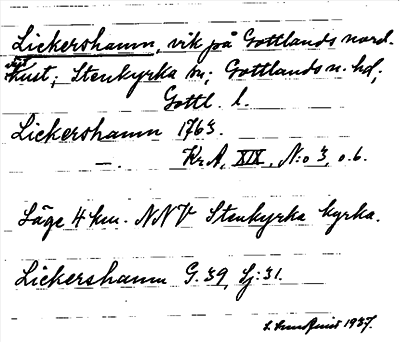 Lickershamn, vik på Gottlands nord-
väst kust; Stenkyrka sn; Gottlands n. hd;
Gottl. l.
Lickershamn 1763.
—. KrA, XIX, N:o 3, o.b.
Läge 4 km. NNV Stenkyrka kyrka.
Lickershamn G. 39, Sj: 31.
1937.